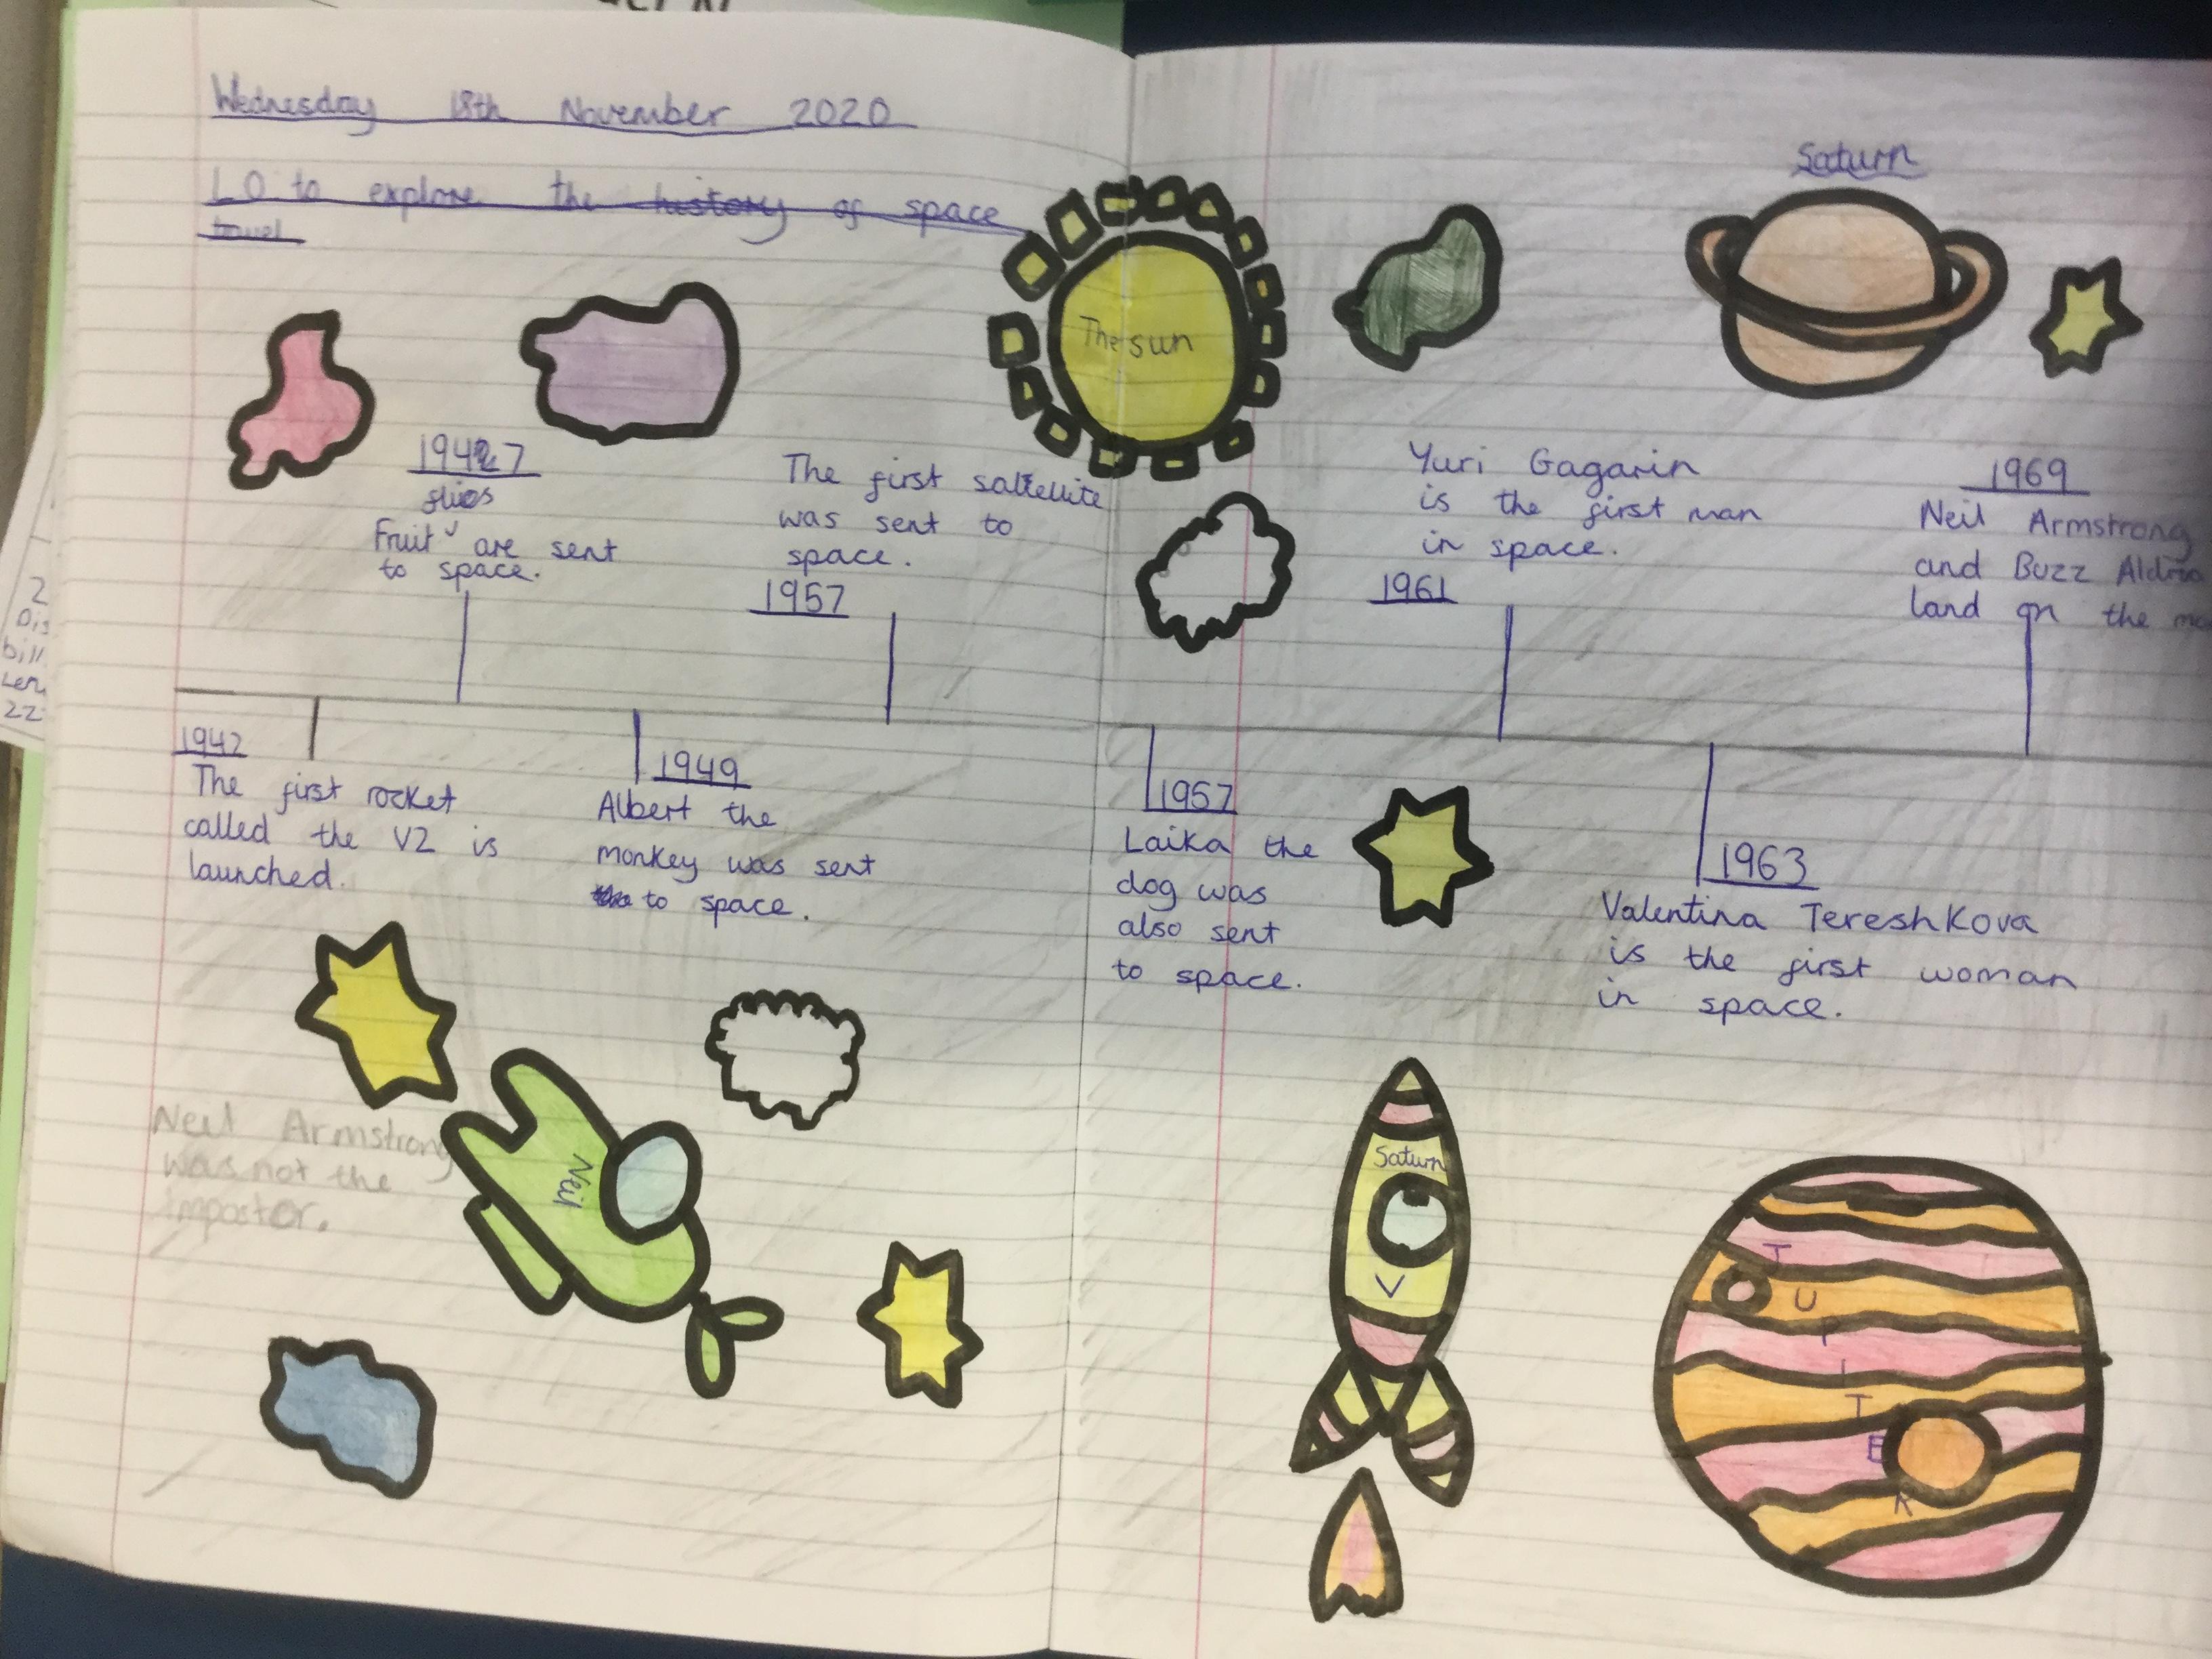 Wednesday 18th November 2020
LO to explore the history of space
travel
Saturn
The sun
1947
flies
Fruit are sent
to space.
The first saltellite
was sent to
space.
1957
Yuri Gagarin
is the first man
in space.
1961
1969
Neil Armstrong
and Buzz Aldrin
land on the mo
1942
The first rocket
called the V2 is
launched.
1949
Albert the
monkey was sent
to space.
1957
Laika the
dog was
also sent
to space.
1963
Valentina Tereshkova
is the first woman
in space.
Neil Armstrong
was not the
impostor.
Neil
Saturn
V
JUPITER
2
Dis
bill
Len
22